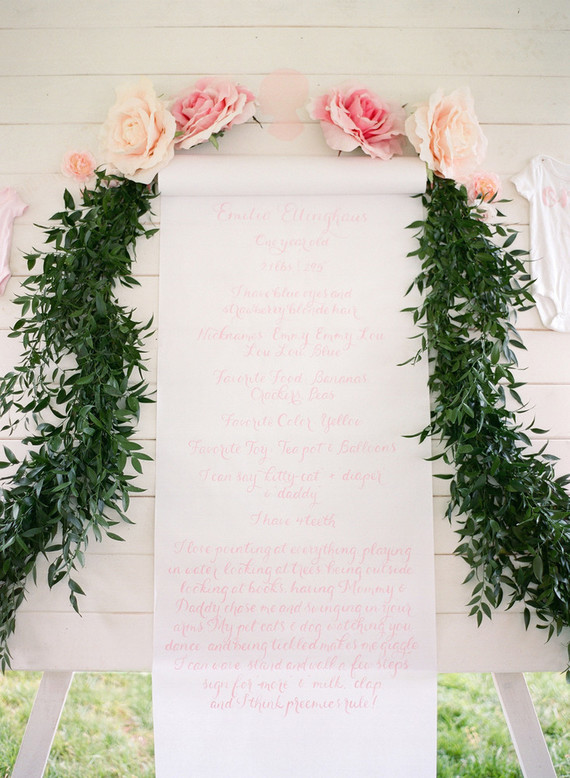 Emilia Ellinghaus
One year old
I have blue eyes and
strawberry blonde hair
Nicknames: Emmy, Emmy Lou
Lou Lou, Blue
Favorite Food: Bananas
Crackers, Peas
Favorite Color: Yellow
Favorite Toy: Tea pot & Balloons
I can say kitty-cat + diaper
& daddy
I have 4 teeth
I love pointing at everything, playing
in water, looking at trees, being outside
looking at books, having Mommy &
Daddy chase me and swinging in your
arms. My pet cats & dog, watching you
dance, and being tickled makes me giggle
I can wave, stand and walk a few steps
sign for more & milk, clap
and I think preemies rule!